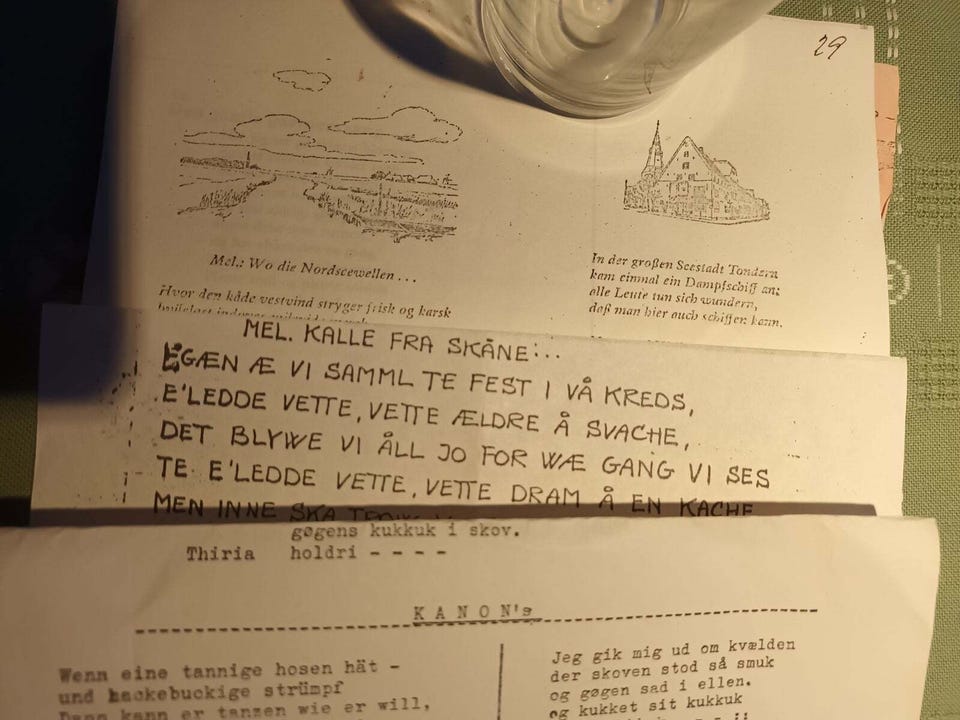 29
Mel.: Wo die Nordseewellen ...
Hvor den kåde vestvind stryger frisk og karsk
In der großen Seestadt Tondern
kam einmal ein Dampfschiff an;
alle Leute tun sich wundern,
daß man hier auch schiffen kann.
MEL. KALLE FRA SKÅNE:..
EGÆN Æ VI SAMML TE FEST I VÅ KREDS,
E'LEDDE VETTE, VETTE ÆLDRE Å SVACHE,
DET BLYWE VI ÅLL JO FOR WÆ GANG VI SES
TE E'LEDDE VETTE, VETTE DRAM Å EN KACHE
MEN INNE SKA
gøgens kukkuk i skov.
Thiria holdri - - - -
KANON's
Wenn eine tannige hosen hät -
und hackebuckige strümpf
Dann kann er tanzen wie er will,
Jeg gik mig ud om kvælden
der skoven stod så smuk
og gøgen sad i ellen.
og kukket sit kukkuk